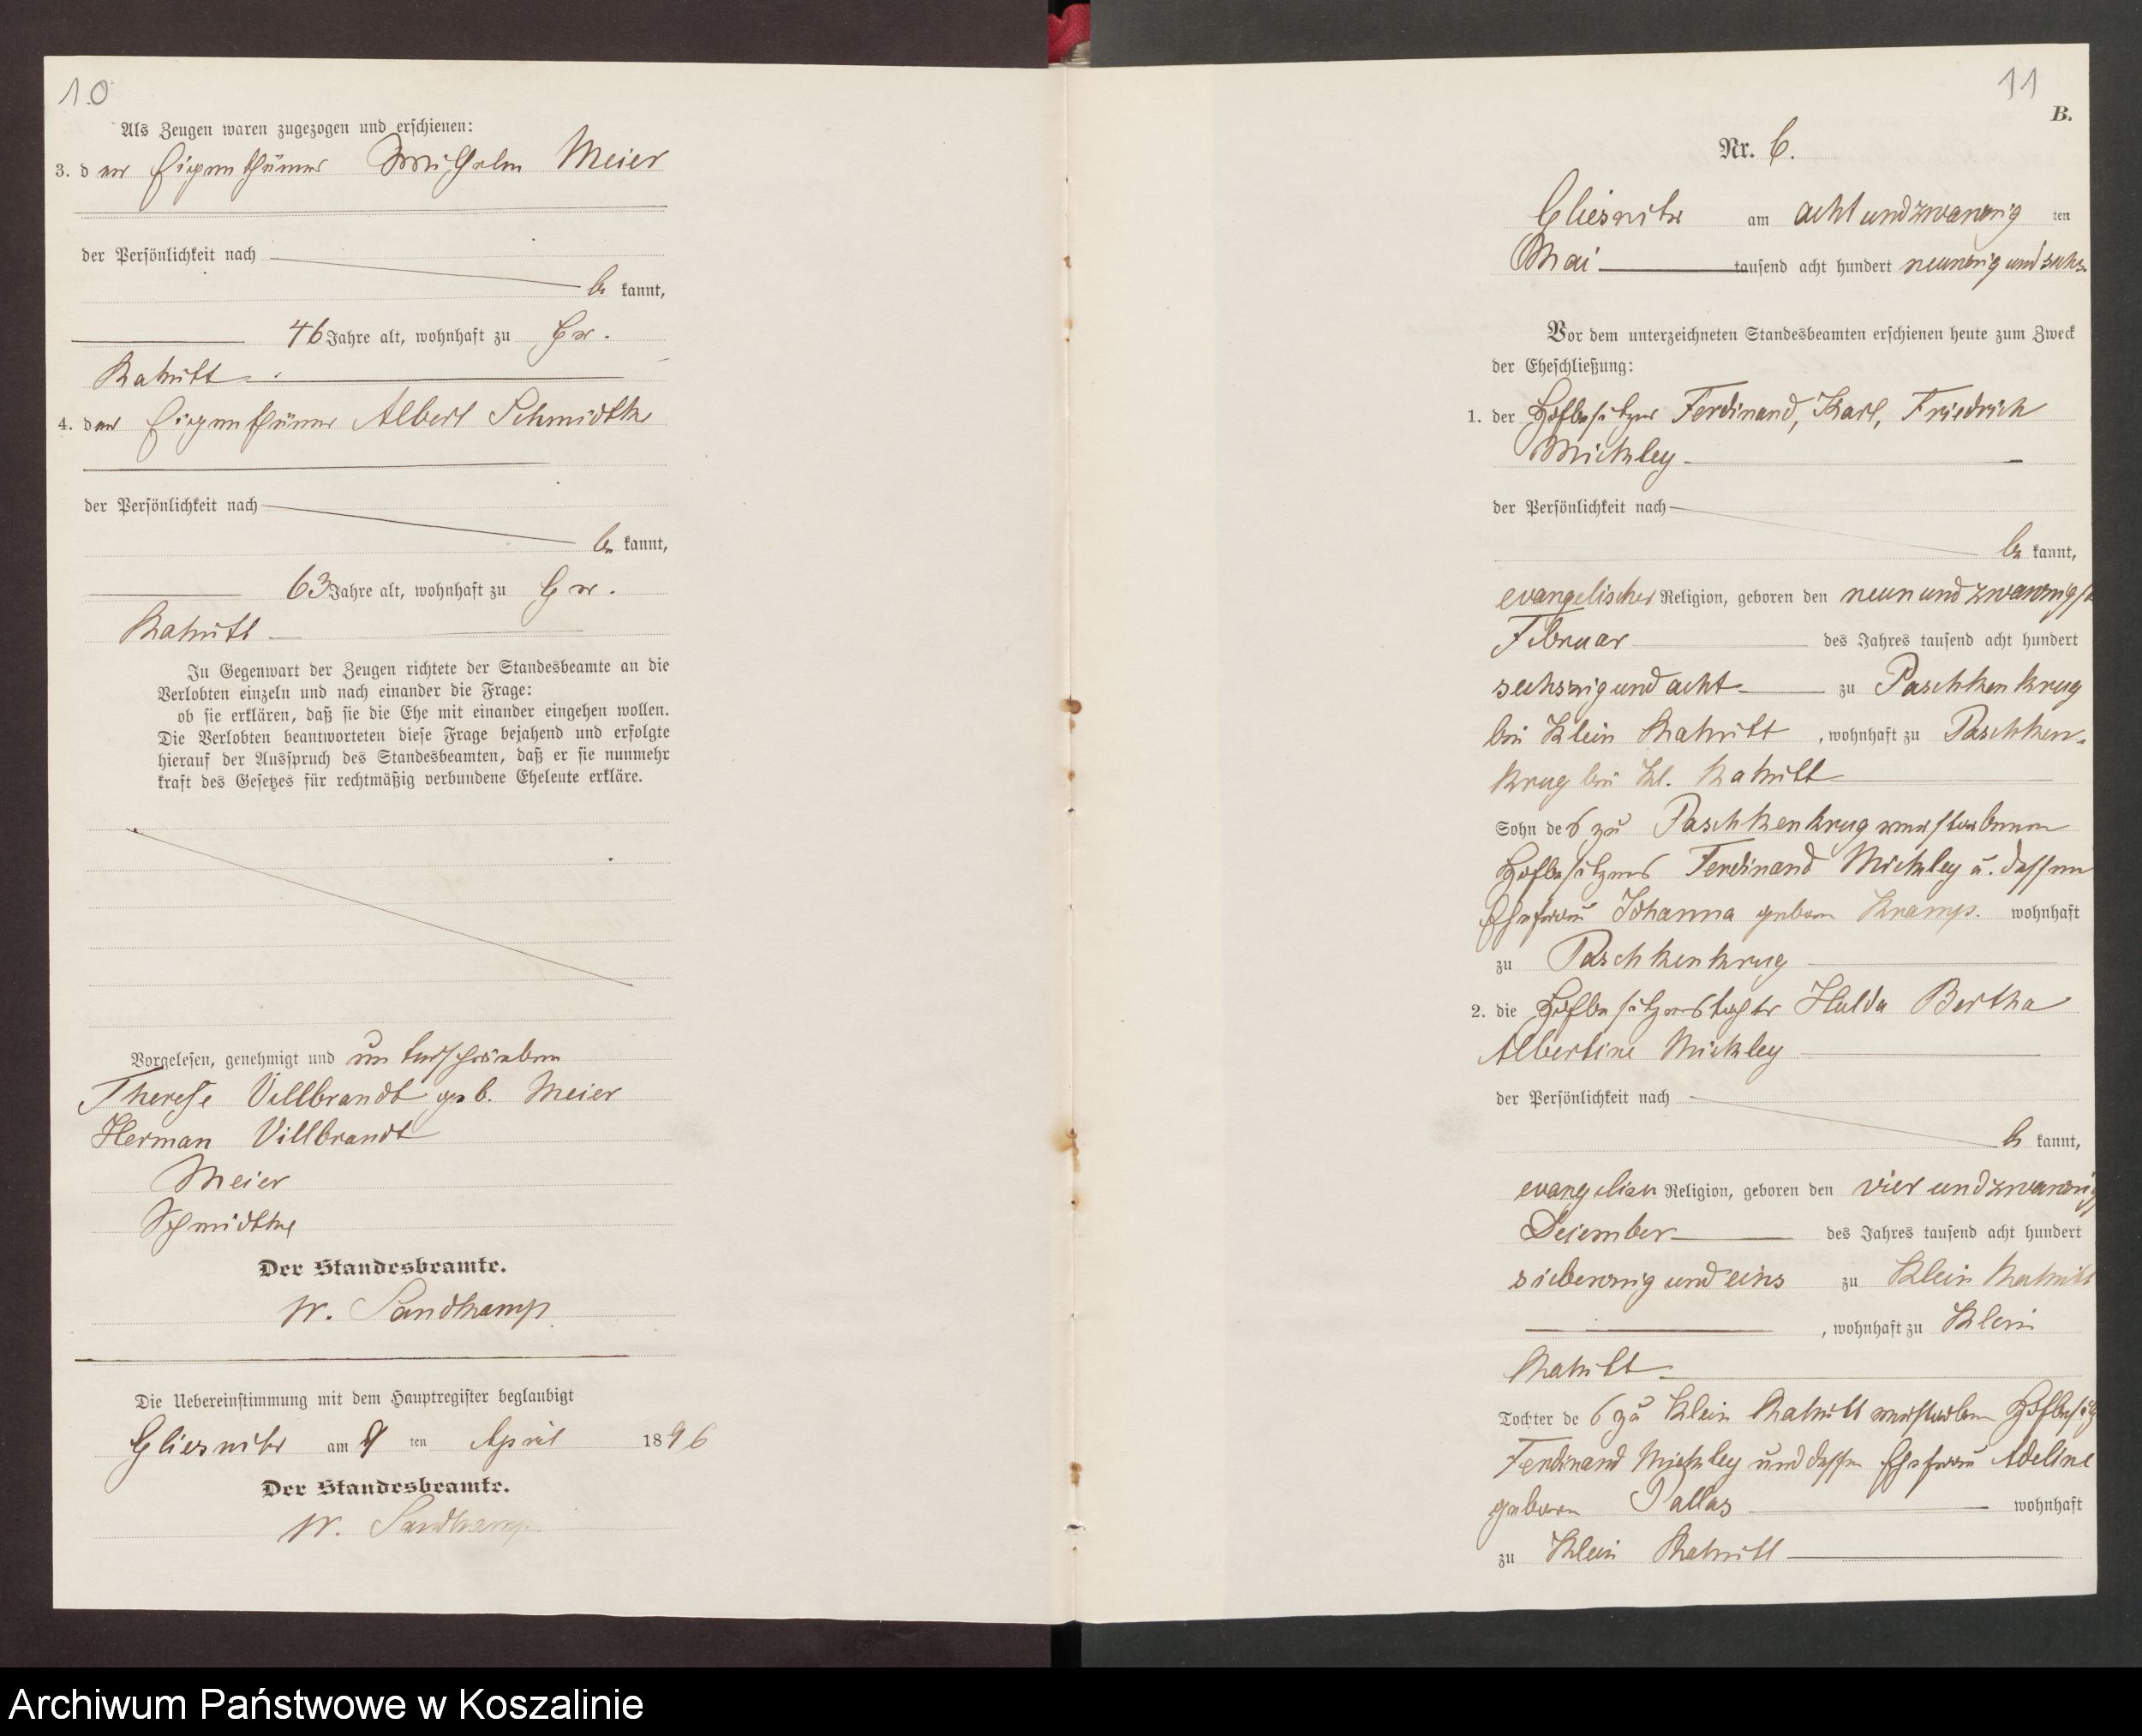 10
Als Zeugen waren zugezogen und erschienen:
3. der Eigenthümer Wilhelm Meier
der Persönlichkeit nach
be kannt,
46 Jahre alt, wohnhaft zu Gr.
Rakitt
4. der Eigenthümer Albert Schmidtke
der Persönlichkeit nach
be kannt,
63 Jahre alt, wohnhaft zu Gr.
Rakitt
In Gegenwart der Zeugen richtete der Standesbeamte an die
Verlobten einzeln und nach einander die Frage:
ob sie erklären, daß sie die Ehe mit einander eingehen wollen.
Die Verlobten beantworteten diese Frage bejahend und erfolgte
hierauf der Ausspruch des Standesbeamten, daß er sie nunmehr
kraft des Gesetzes für rechtmäßig verbundene Eheleute erkläre.
Vorgelesen, genehmigt und unterschrieben
Therese Villbrandt geb. Meier
Herman Villbrandt
Meier
Schmidtke
Der Standesbeamte.
W. Sandkamp
Die Uebereinstimmung mit dem Hauptregister beglaubigt
Gliesnitz am 9 ten April 1896
Der Standesbeamte.
W. Sandkamp
11
B.
Nr. 6.
Gliesnitz am achtundzwanzig ten
Mai tausend acht hundert neunzig und sechs.
Vor dem unterzeichneten Standesbeamten erschienen heute zum Zweck
der Eheschließung:
1. der Hofbesitzer Ferdinand, Karl, Friedrich
Mickley
der Persönlichkeit nach
be kannt,
evangelischer Religion, geboren den neun und zwanzigst
Februar des Jahres tausend acht hundert
sechszig und acht zu Paschkenkrug
bei Klein Rakitt, wohnhaft zu Paschken-
krug bei Kl. Rakitt
Sohn des zu Paschkenkrug verstorbenen
Hofbesitzers Ferdinand Mickley u. dessen
Ehefrau Johanna geboren Kramp. wohnhaft
zu Paschkenkrug
2. die Hofbesitzerstochter Hulda Bertha
Albertine Mickley
der Persönlichkeit nach
be kannt,
evangelischen Religion, geboren den vier und zwanzig
Dezember des Jahres tausend acht hundert
siebenzig und eins zu Klein Rakitt
, wohnhaft zu Klein
Rakitt
Tochter des zu Klein Rakitt verstorbenen Hofbesitz
Ferdinand Mickley und dessen Ehefrau Adeline
geboren Pallas wohnhaft
zu Klein Rakitt
Archiwum Państwowe w Koszalinie